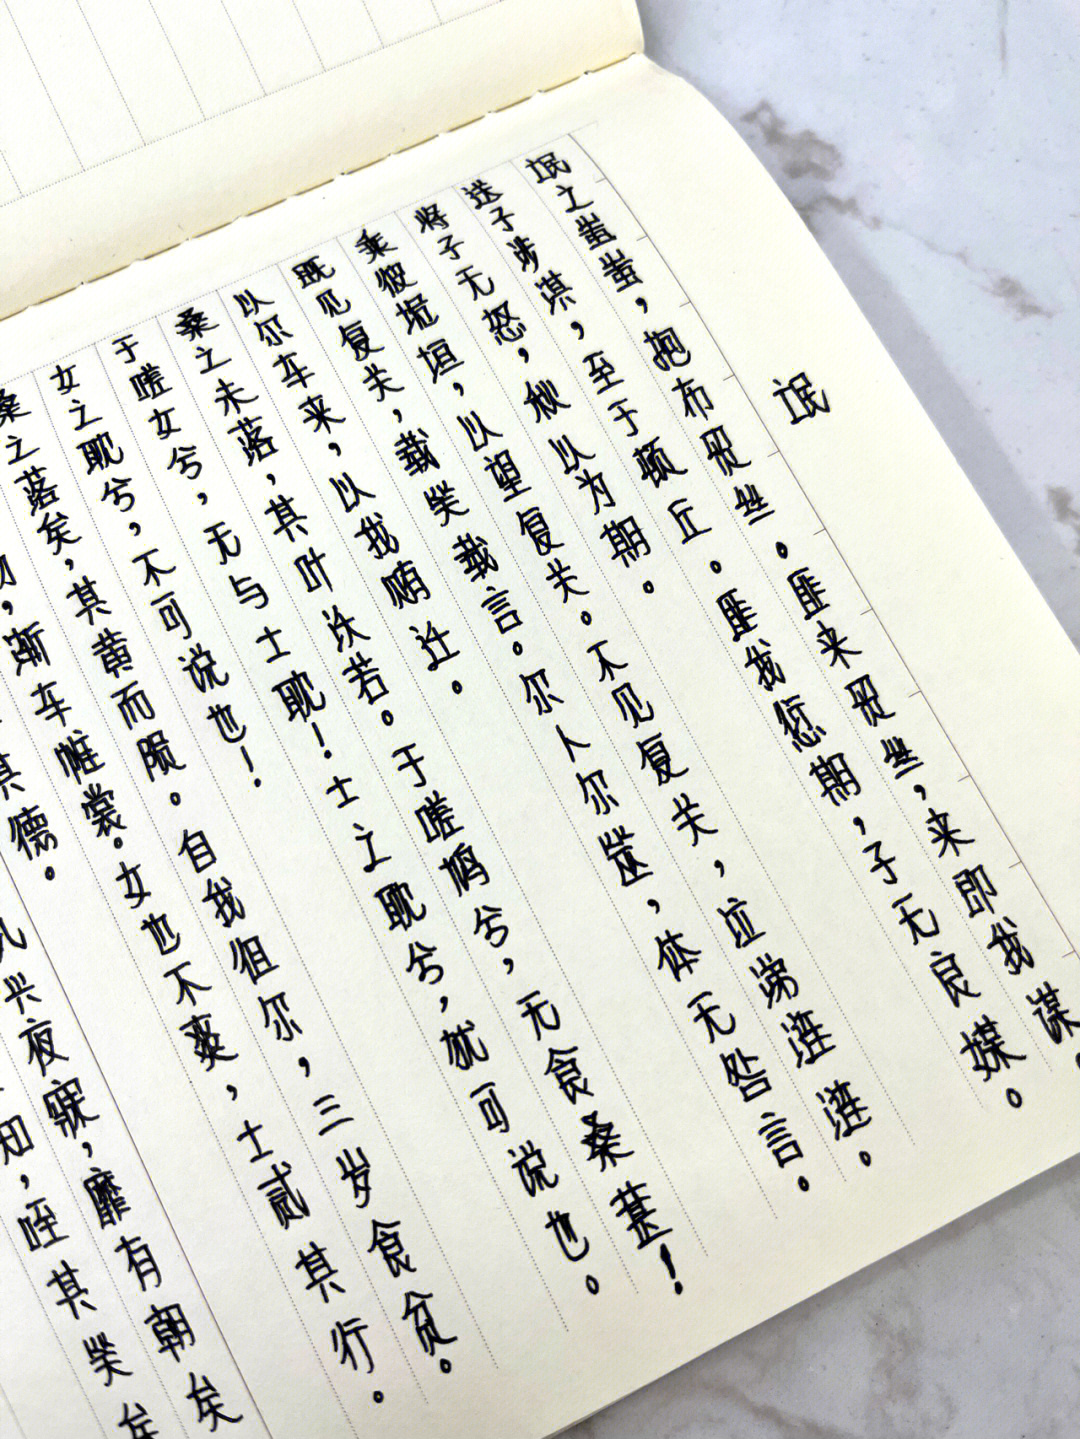 氓
氓之蚩蚩，抱布贸丝。匪来贸丝，来即我谋。
送子涉淇，至于顿丘。匪我愆期，子无良媒。
将子无怒，秋以为期。
乘彼垝垣，以望复关。不见复关，泣涕涟涟。
既见复关，载笑载言。尔卜尔筮，体无咎言。
以尔车来，以我贿迁。
桑之未落，其叶沃若。于嗟鸠兮，无食桑葚！
于嗟女兮，无与士耽！士之耽兮，犹可说也。
女之耽兮，不可说也！
桑之落矣，其黄而陨。自我徂尔，三岁食贫。
，渐车帷裳。女也不爽，士贰其行。
其德。
兴夜寐，靡有朝矣
知，咥其笑矣